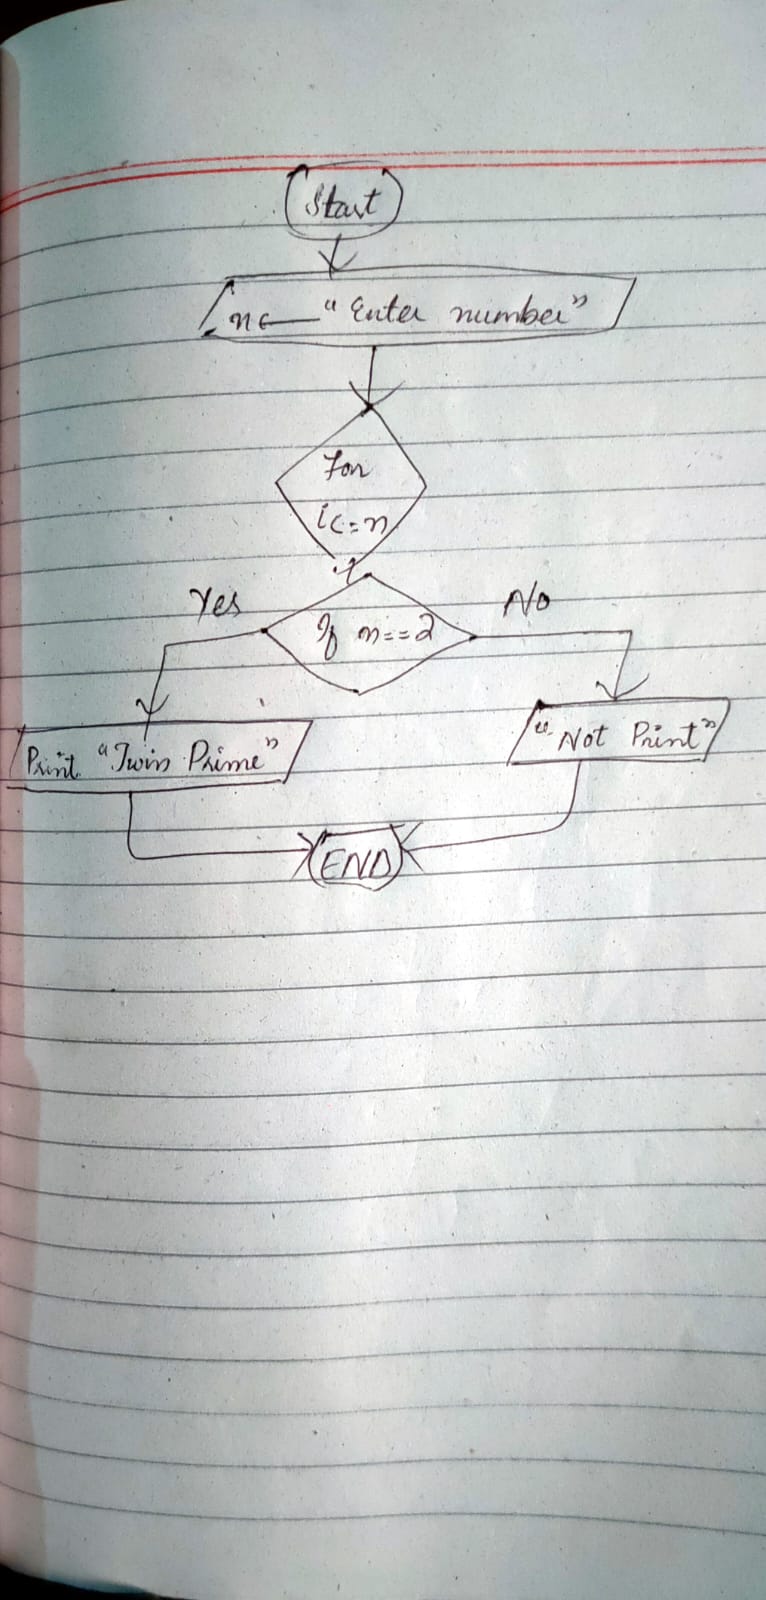 Start
n ← "Enter number"
For
i<=n
Yes
No
If n==2
Print "Twin Prime"
"Not Print"
END